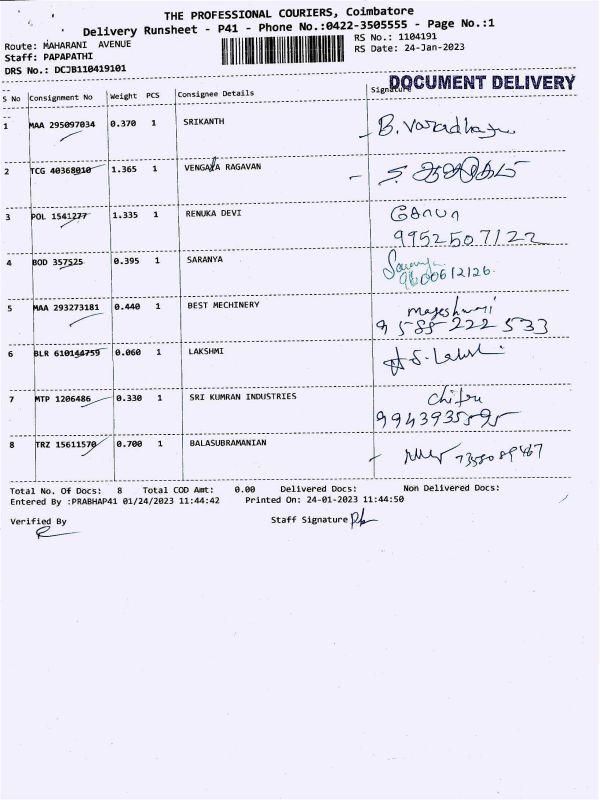 THE PROFESSIONAL COURIERS, Coimbatore
Delivery Runsheet - P41 - Phone No.:0422-3505555 - Page No.:1
Route: MAHARANI AVENUE RS No.: 1104191
Staff: PAPAPATHI RS Date: 24-Jan-2023
DRS No.: DCJB110419101
DOCUMENT DELIVERY
S No Consignment No Weight PCS Consignee Details Signature
1 MAA 295097034 0.370 1 SRIKANTH B. Varadharaju
2 TCG 40368010 1.365 1 VENGATA RAGAVAN
3 POL 1541277 1.335 1 RENUKA DEVI
9952507122
4 BOD 357525 0.395 1 SARANYA Saranya
9600612126
5 MAA 293273181 0.440 1 BEST MECHINERY mageshwari
9 585 222 533
6 BLR 610144759 0.060 1 LAKSHMI
7 MTP 1206486 0.330 1 SRI KUMRAN INDUSTRIES Chitra
9943935595
8 TRZ 15611570 0.700 1 BALASUBRAMANIAN
Total No. Of Docs: 8 Total COD Amt: 0.00 Delivered Docs: Non Delivered Docs:
Entered By :PRABHAP41 01/24/2023 11:44:42 Printed On: 24-01-2023 11:44:50
Verified By Staff Signature